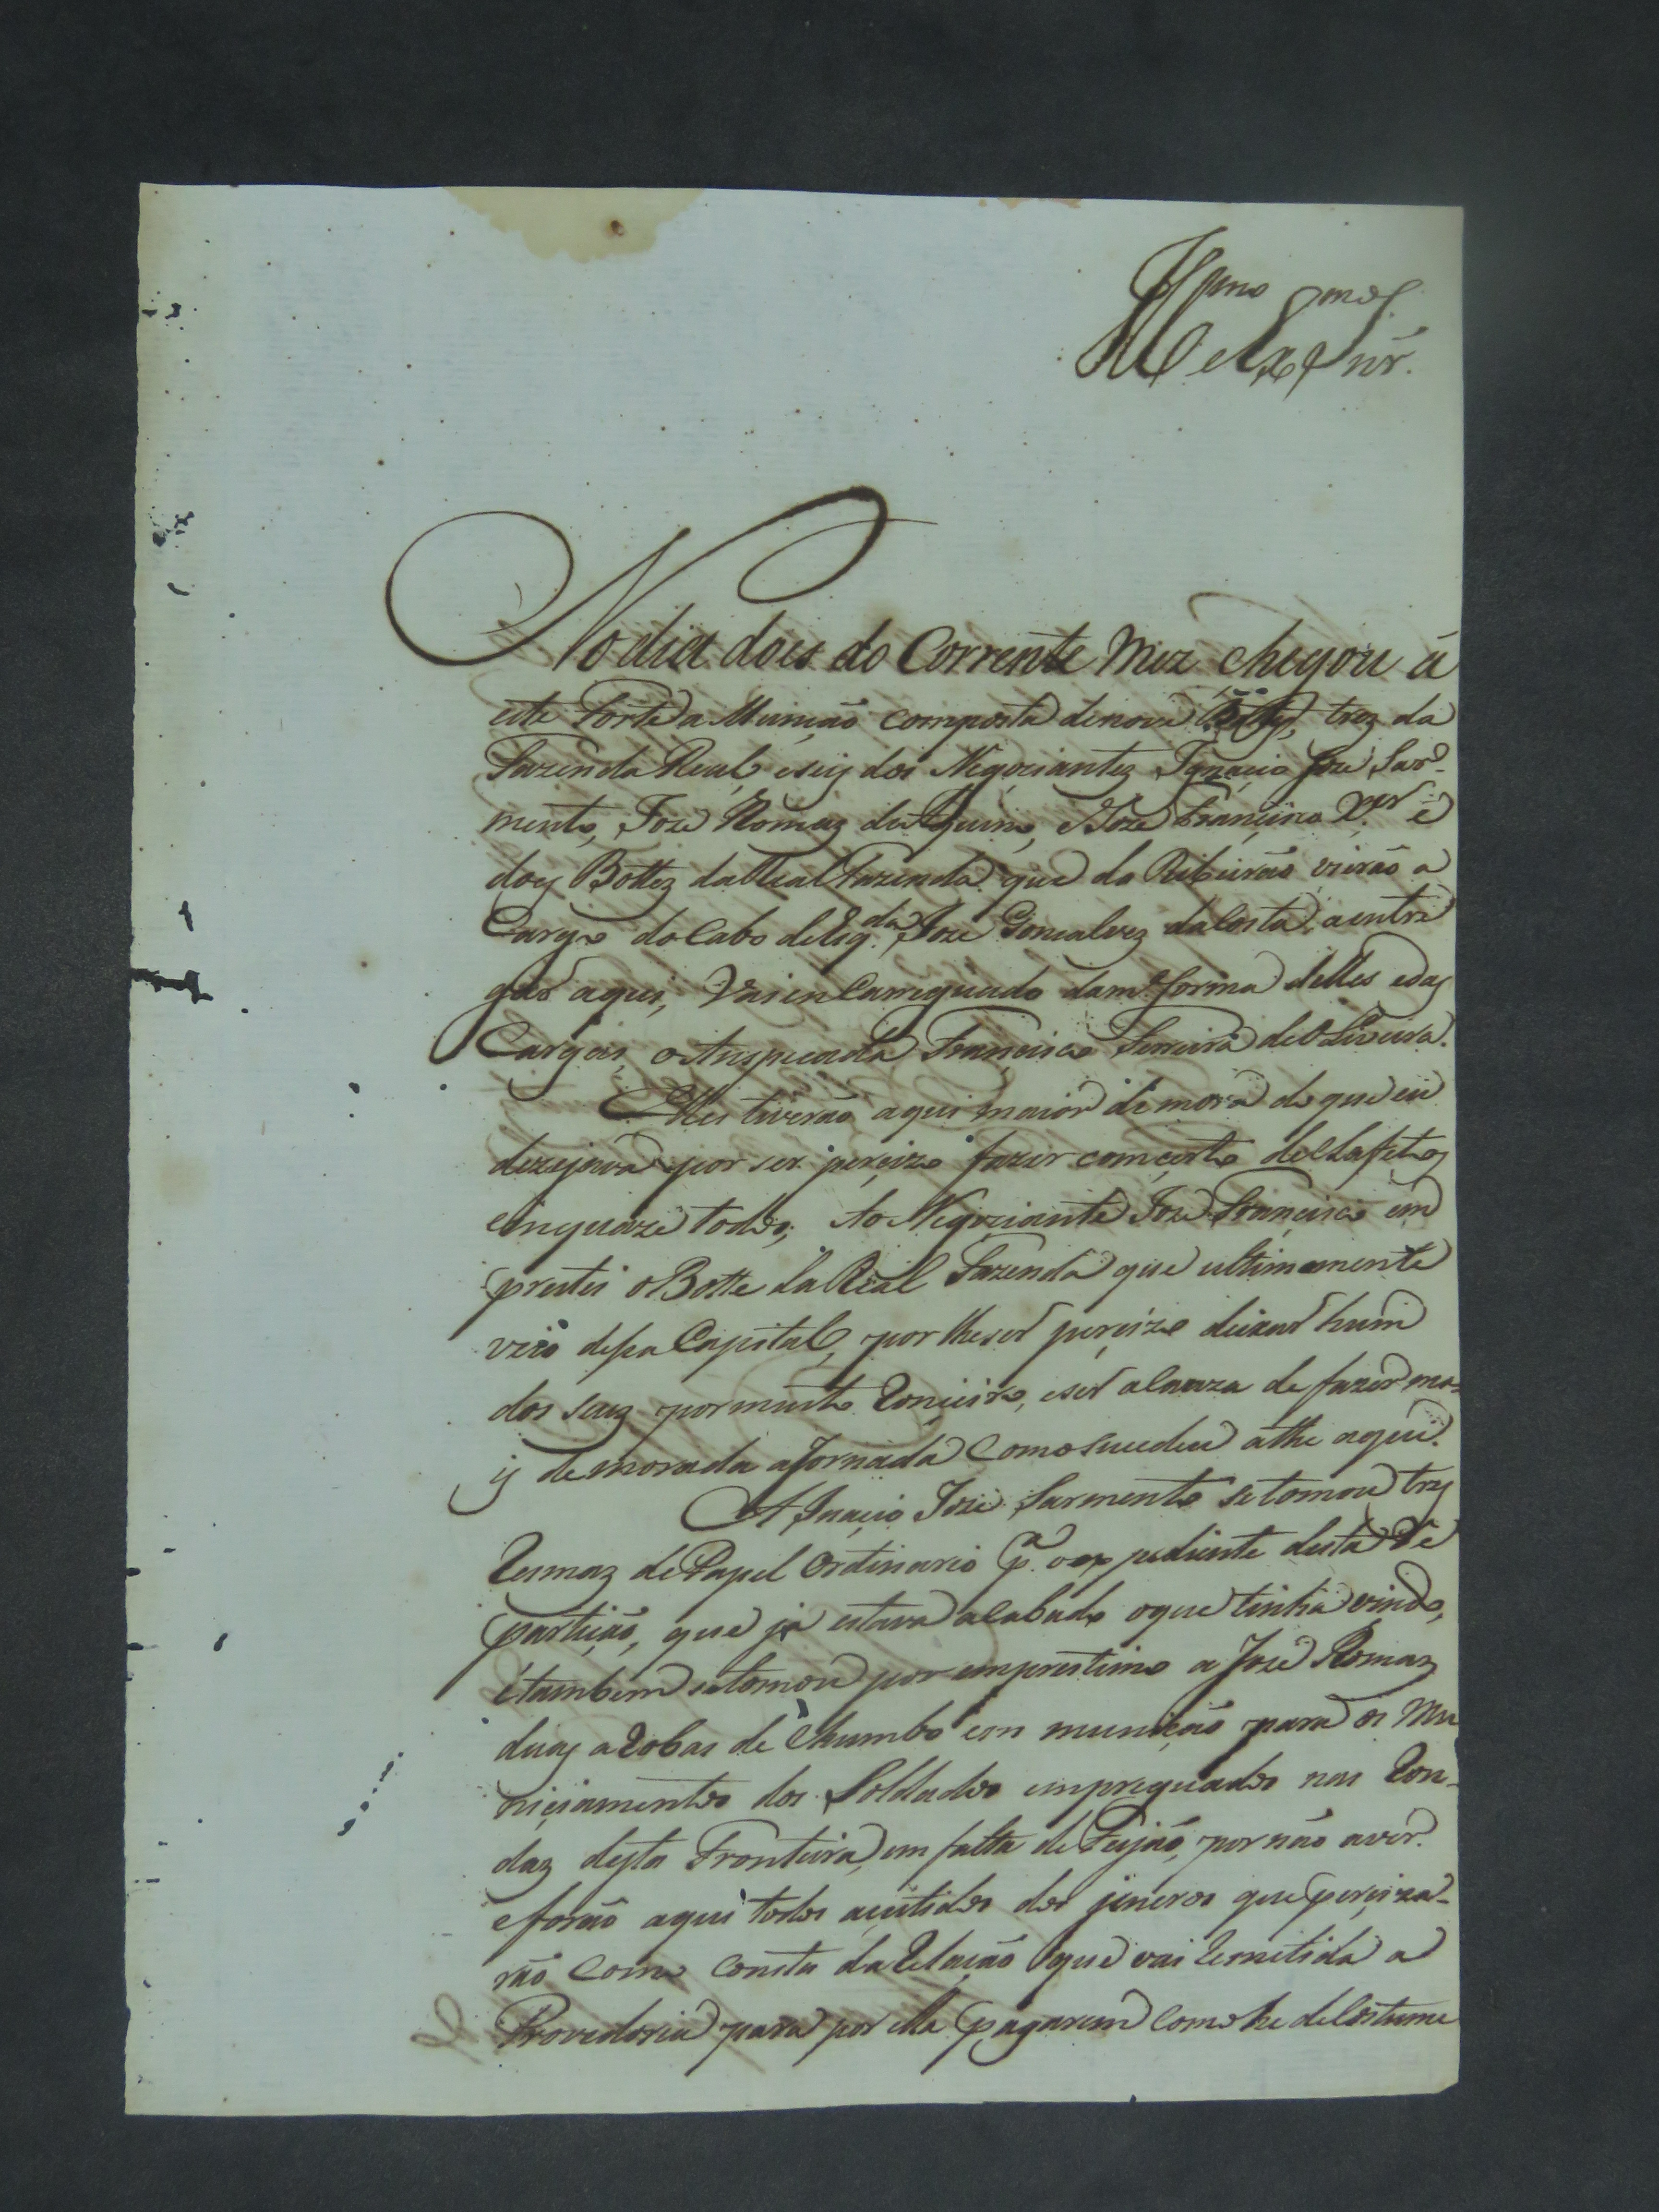 Illmo e Exmo Snr.
No dia does do Corrente Mez chegou á
este Forte a Munção composta de nove trez da
Fazenda Real, e seiz dos Negociantez Ignacio Joze Sar-
mento, Joze Romaz de Aquino, e Joze Francisco Xer e
doez Bottez da Real Fazenda que do Ribeirão vierão a
Cargo do Cabo de Esq.da Joze Gonsalvez da Costa, a entre
gar aqui, Vai enCarregado da m.ma forma delles e daz
Cargas, o Anspecada Francisco Ferreira de Oliveira.
Elles tiverão aqui maior demora do que eu
dezejava por ser perçizo fazer comçerto de
em quaze todos; Ao Negociante Joze Francisco em
prestei o Botte da Real Fazenda que ultimamente
veio dessa Capital, por lhe ser perçizo deixar hum
dos seuz por muito Ronçeiro, e ser a Cauza de fazer ma-
iz demorada a Jornada Como suçedeu athe aqui.
A Inaçio Joze Sarmento se tomou trez
Resmaz de Papel Ordinario p.a o expediente desta Re
partição, que ja estava acabado o que tinha vindo,
e tambem se tomou por emprestimo a Joze Romaz
duaz aRobas de Chumbo em munição para os Mu
niçiamentos dos Soldados empreguados nas Ron-
daz desta Fronteira, em falta de Feijão, por não aver.
e forão aqui todos açistidos dos jeneros que perçiza-
rão Como consta da Relação que vai Remetida a
Provedoria para por ella pagarem Como he de Costume